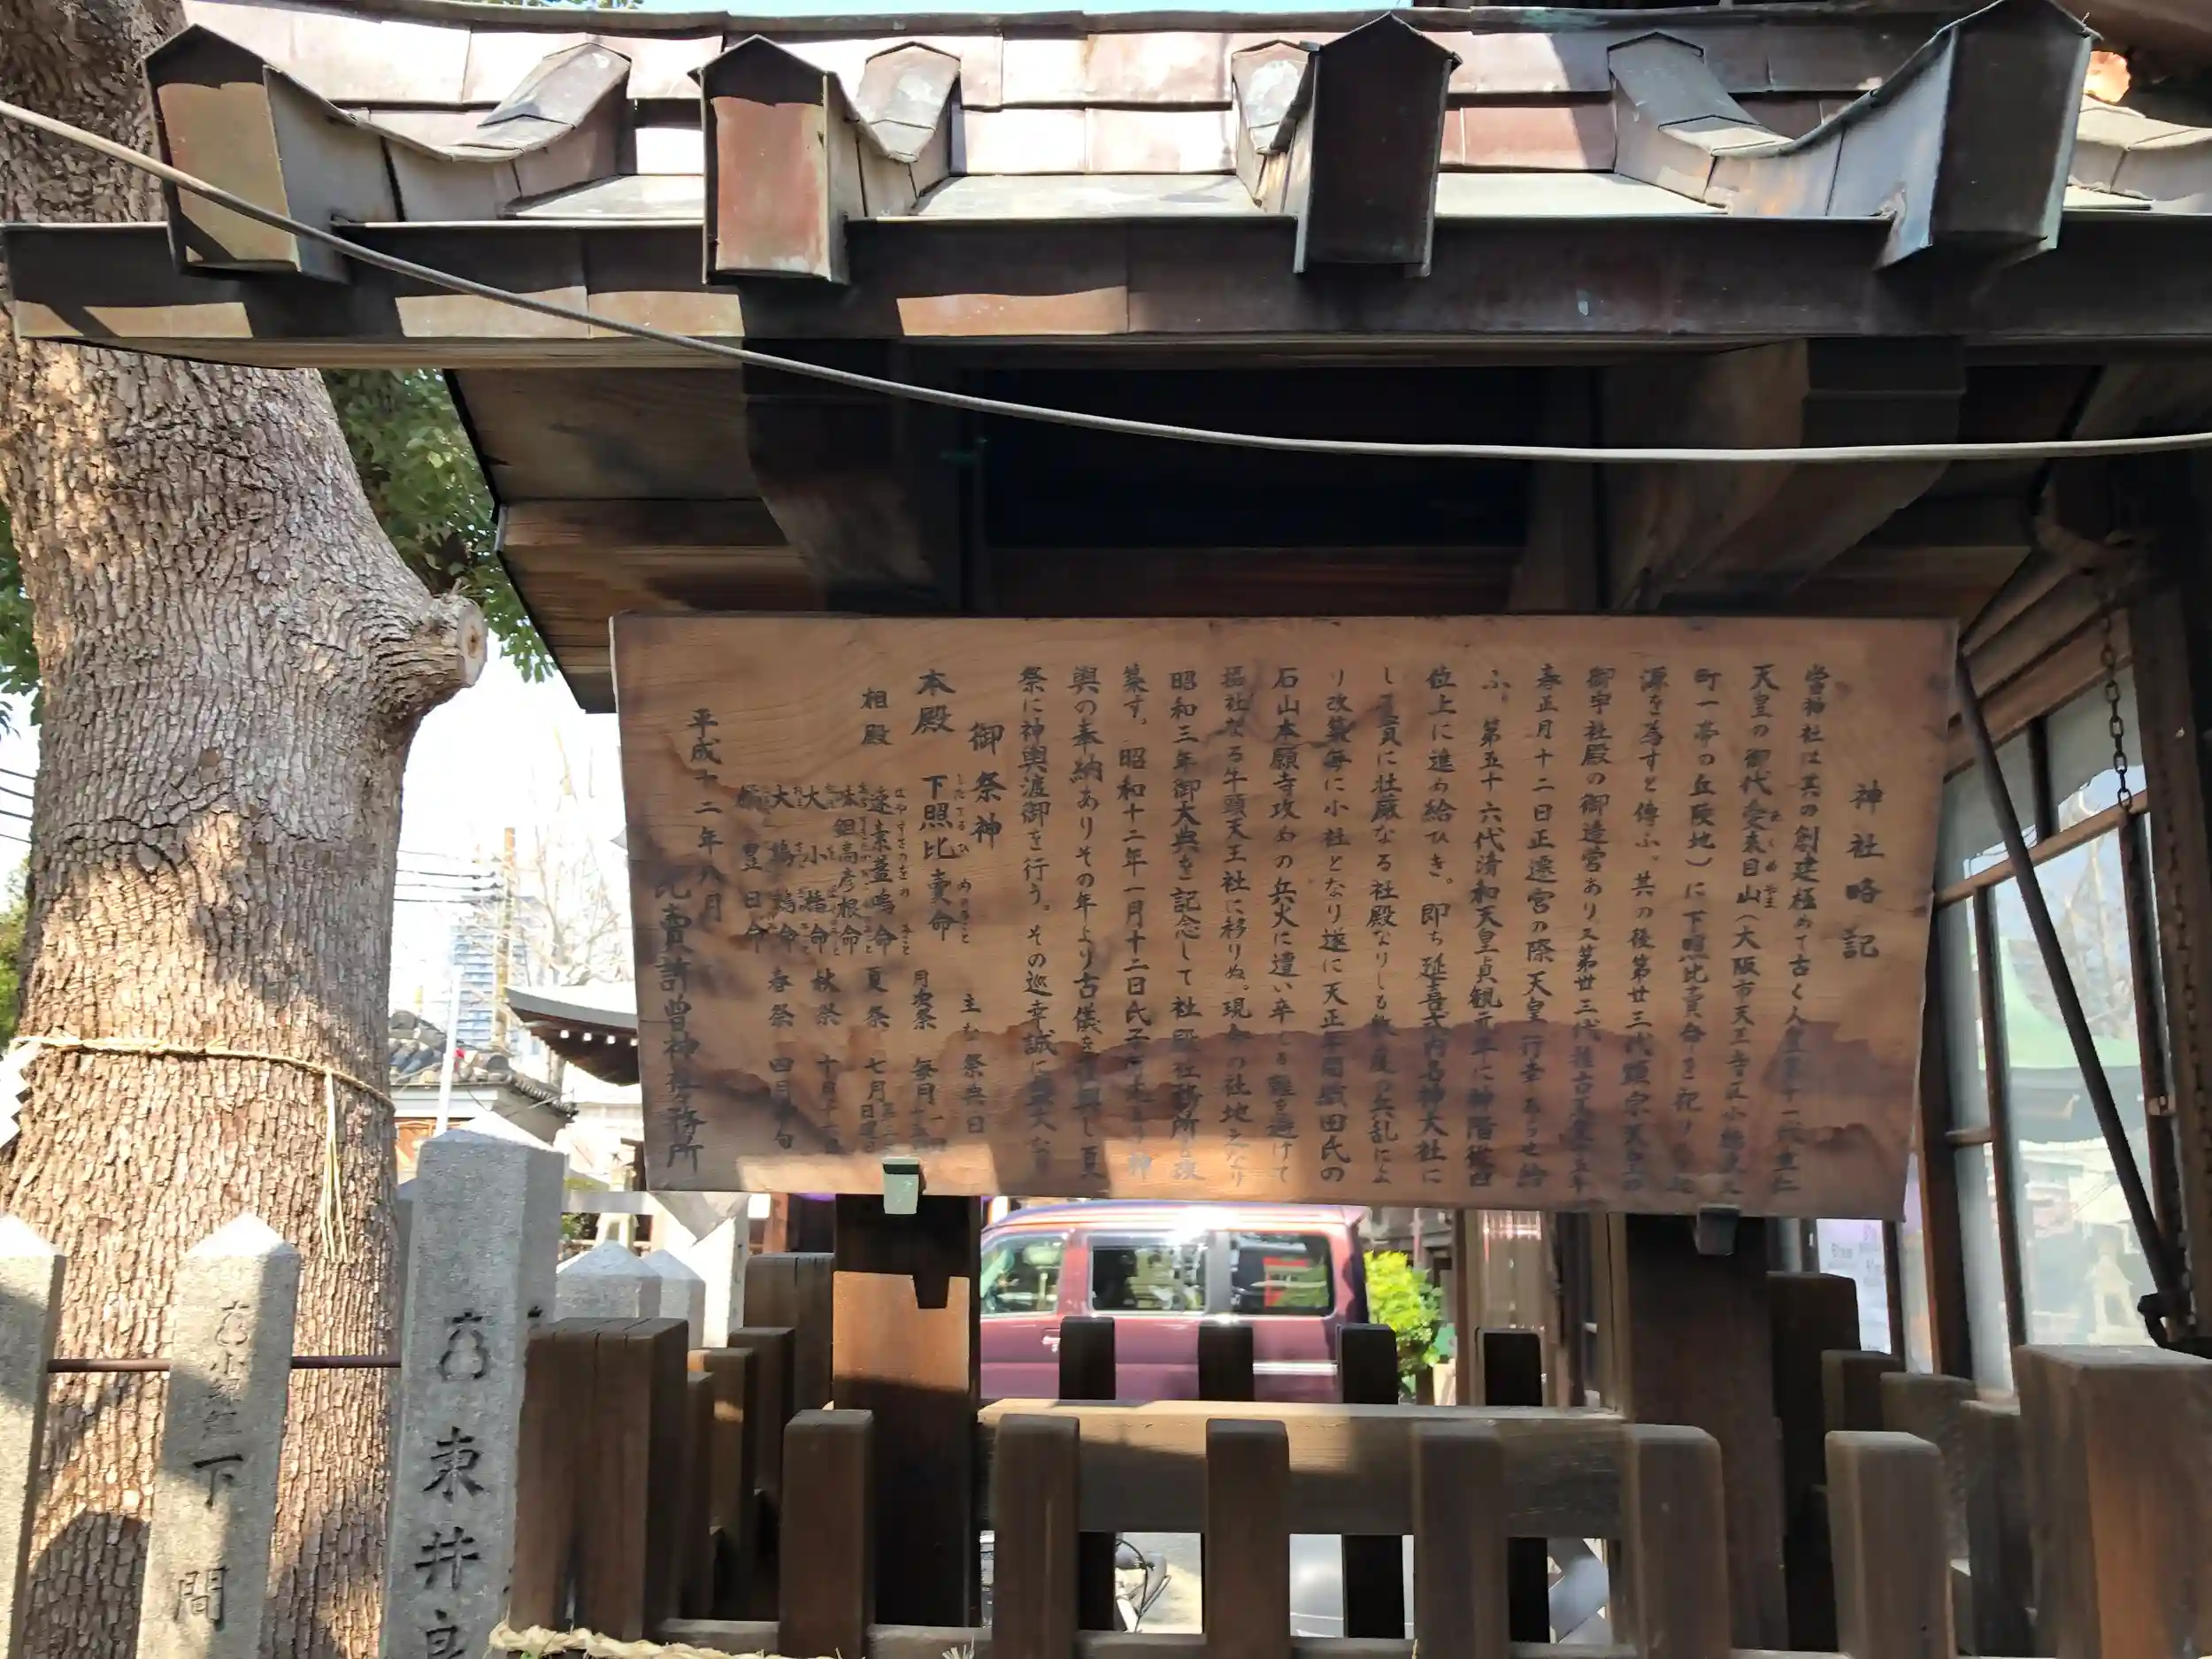 神社略記
当神社は其の創建極めて古く人皇第十一代垂仁
天皇の御代愛来目山（大阪市天王寺区小橋
町一帯の丘陵地）に下照比賣命を祀り
源を為すと傳ふ。其の後第廿三代顕宗天皇の
御宇社殿の御造営あり又第廿三代推古天皇十五年
春正月十二日正遷宮の際天皇行幸あらせ給
ふ。第五十六代清和天皇貞観元年に神階従四
位上に進め給ひき。即ち延喜式内名神大社に
し社厳なる社殿なりしも数度の兵乱によ
り改築毎に小社となり遂に天正年間織田氏の
石山本願寺攻めの兵火に遭い卒じる難を避けて
摂社なる牛頭天王社に移りぬ。現今の社地之なり
昭和三年御大典を記念して社殿社務所を改
築す。昭和十二年一月十二日氏子 より神
輿の奉納ありその年より古儀を復興し夏
祭に神輿渡御を行う。その巡幸誠に盛大なり
御祭神 主な祭典日
本殿 下照比賣命 月次祭 毎月一日
したてるひ めのみこと
相殿 速素盞嗚命 夏祭 七月
はやすさのをの みこと
味耜高彦根命
大小橋命 秋祭 十月
大鷦鷯命 春祭 四月
橘豊日命
平成十二年八月
比賣許曽神社々務所
東井良
下間